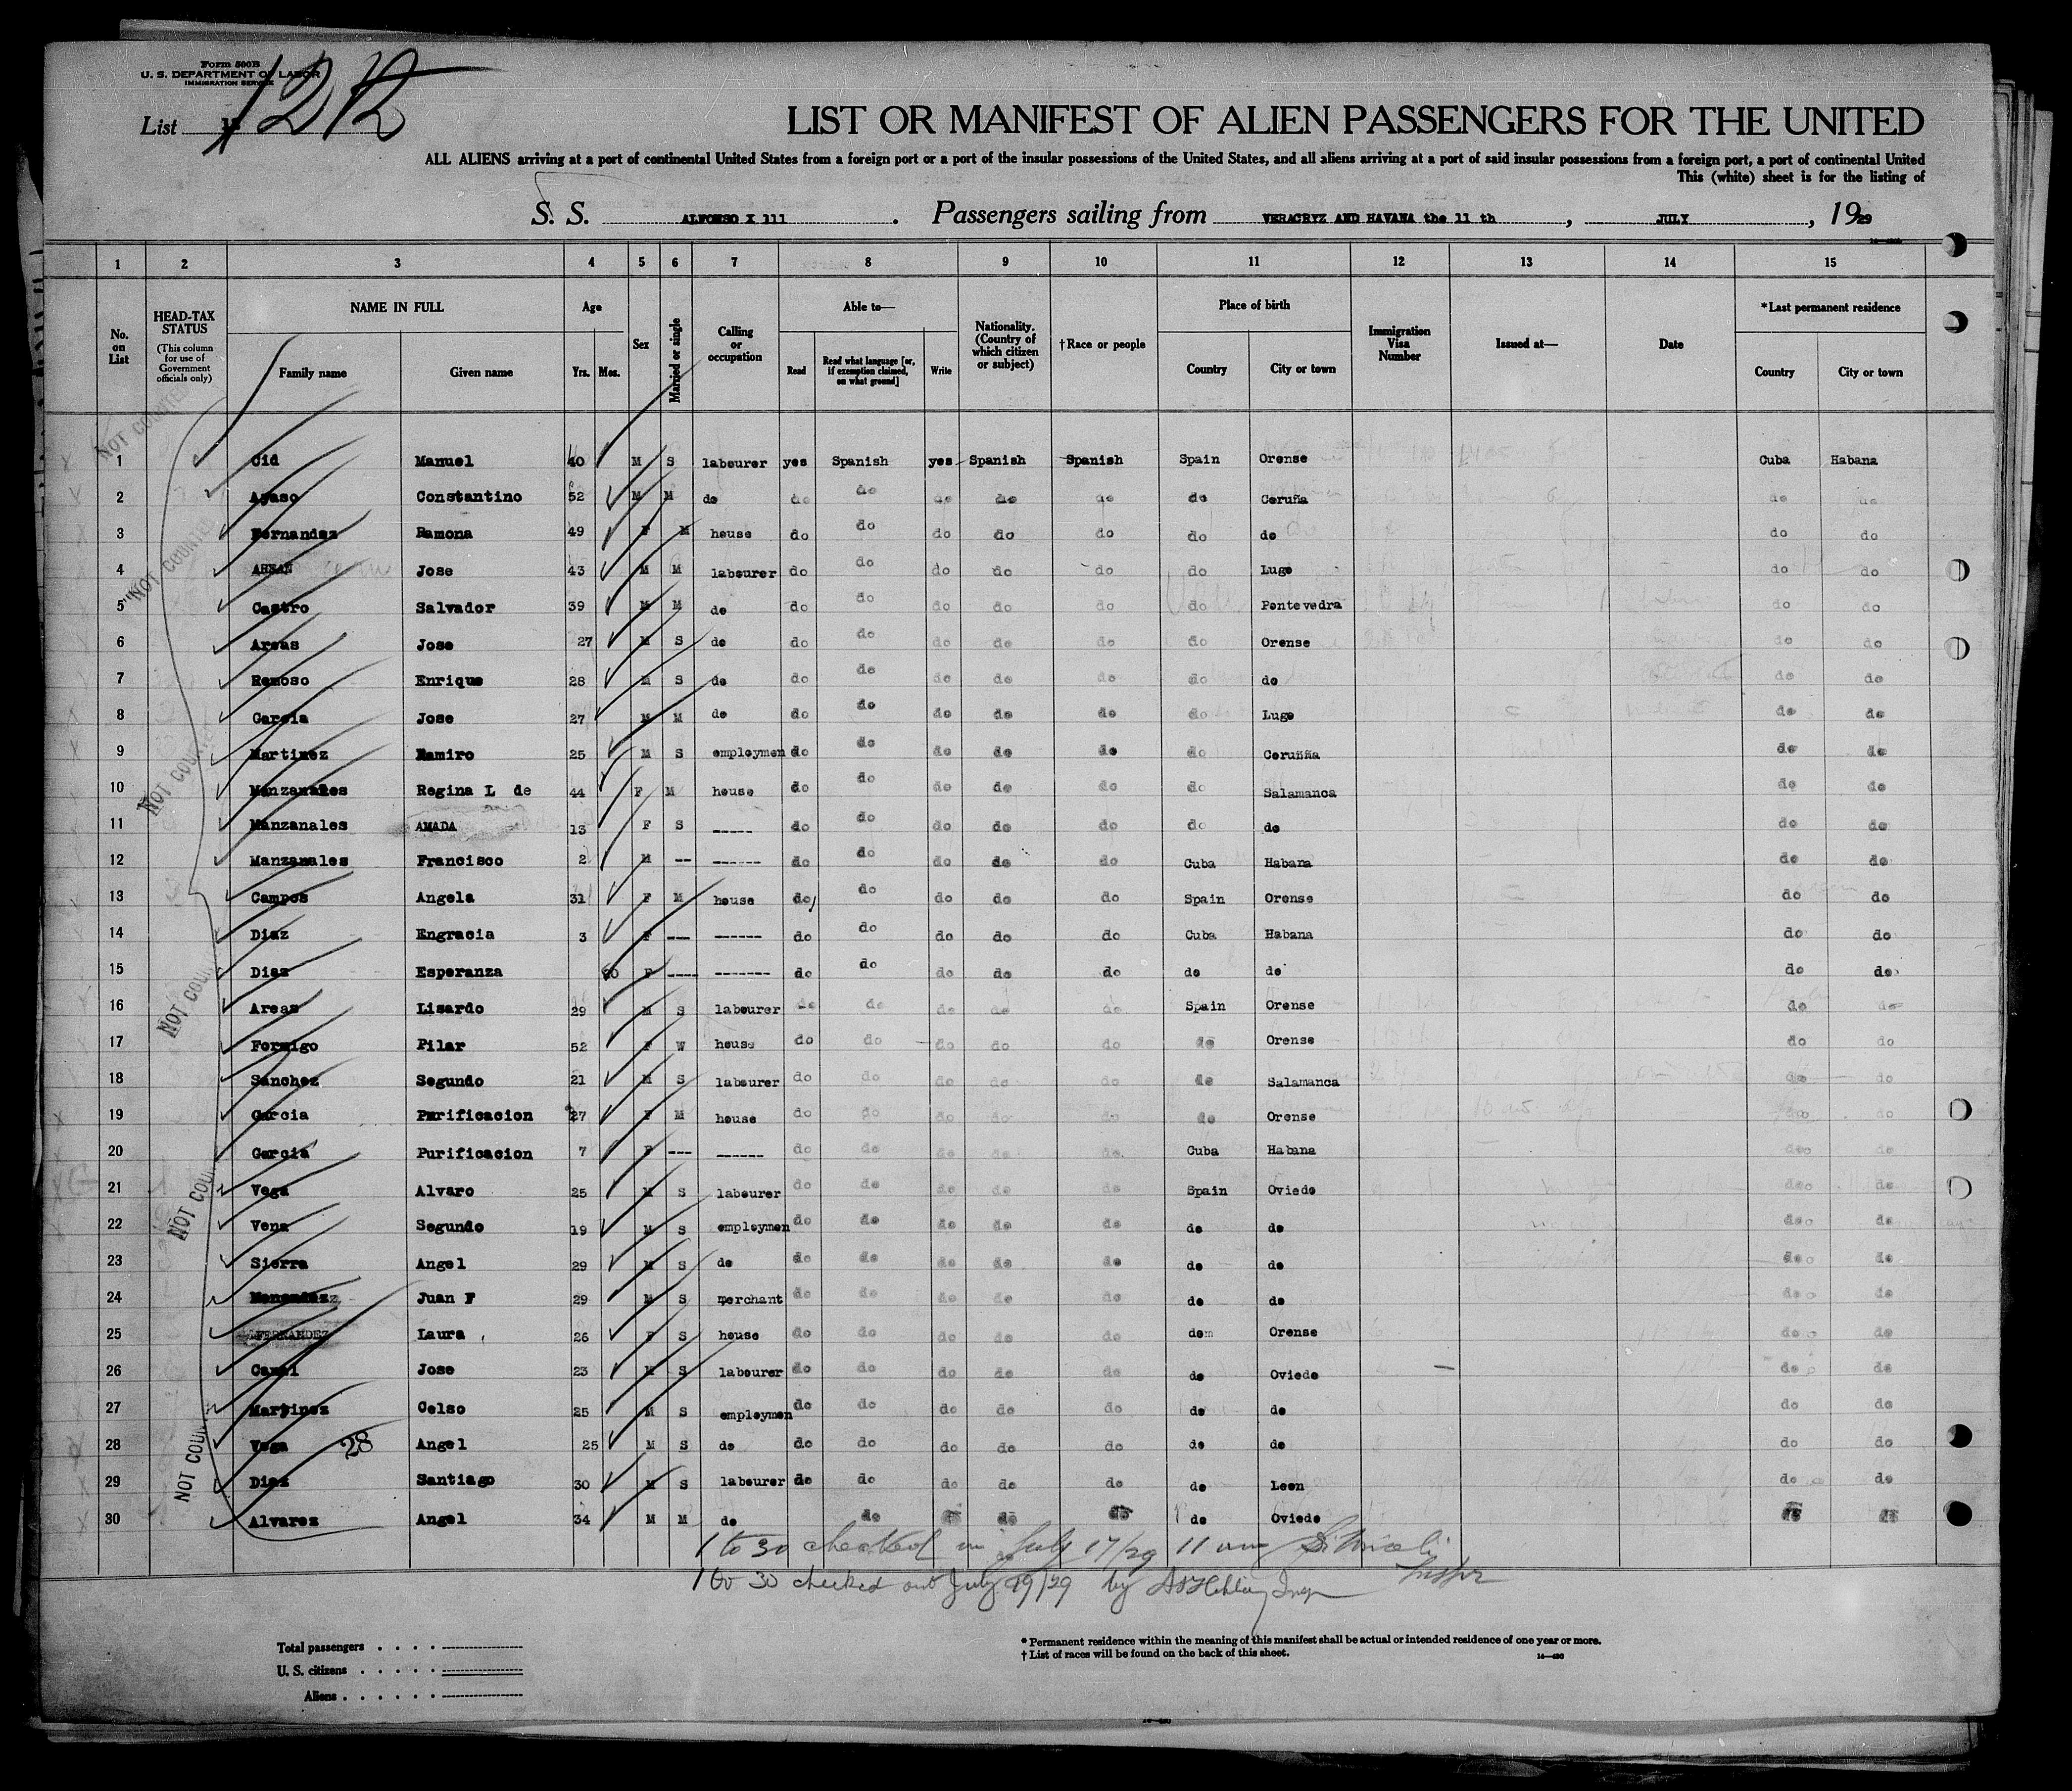 Form 500B
U. S. DEPARTMENT OF LABOR
IMMIGRATION SERVICE
List 12
LIST OR MANIFEST OF ALIEN PASSENGERS FOR THE UNITED
ALL ALIENS arriving at a port of continental United States from a foreign port or a port of the insular possessions of the United States, and all aliens arriving at a port of said insular possessions from a foreign port, a port of continental United
This (white) sheet is for the listing of
S. S. ALFONSO X 111 . Passengers sailing from VERACRYZ AND HAVANA the 11 th , JULY , 1929
1 2 3 4 5 6 7 8 9 10 11 12 13 14 15
No. on List HEAD-TAX STATUS (This column for use of Government officials only) NAME IN FULL Family name Given name Age Yrs. Mos. Sex Married or single Calling or occupation Able to— Read Read what language [or, if exemption claimed, on what ground] Write Nationality. (Country of which citizen or subject) †Race or people Place of birth Country City or town Immigration Visa Number Issued at— Date *Last permanent residence Country City or town
1 Cid Manuel 40 M S labourer yes Spanish yes Spanish Spanish Spain Orense Cuba Habana
2 Ayaso Constantino 52 M M do do do do do do do Coruña do do
3 Fernandez Ramona 49 F M house do do do do do do do do do
4 Jose 43 M M labourer do do do do do do Lugo do do
5 Castro Salvador 39 M M do do do do do do do Pontevedra do do
6 Areas Jose 27 M S do do do do do do do Orense do do
7 Remoso Enrique 28 M S do do do do do do do do do do
8 Garcia Jose 27 M M do do do do do do do Lugo do do
9 Martinez Ramiro 25 M S employmen do do do do do do Coruñña do do
10 Manzanales Regina L de 44 F M house do do do do do do Salamanca do do
11 Manzanales AMADA 13 F S ----- do do do do do do do do do
12 Manzanales Francisco 2 M -- ------ do do do do do Cuba Habana do do
13 Campos Angela 31 F M house do do do do do Spain Orense do do
14 Diaz Engracia 3 F --- ------ do do do do do Cuba Habana do do
15 Diaz Esperanza F ---- ------- do do do do do do do do do
16 Areas Lisardo 29 M S labourer do do do do do Spain Orense do do
17 Formigo Pilar 52 F W house do do do do do do Orense do do
18 Sanchez Segundo 21 M S labourer do do do do do do Salamanca do do
19 Garcia Purificacion 27 F M house do do do do do do Orense do do
20 Garcia Purificacion 7 F --- ------ do do do do do Cuba Habana do do
21 Vega Alvaro 25 M S labourer do do do do do Spain Oviedo do do
22 Vena Segundo 19 M S employmen do do do do do do do do do
23 Sierra Angel 29 M S do do do do do do do do do do
24 Menendez Juan F 29 M S merchant do do do do do do do do do
25 FERNANDEZ Laura 26 F S house do do do do do do Orense do do
26 Canal Jose 23 M S labourer do do do do do do Oviedo do do
27 Martinez Celso 25 M S employmen do do do do do do do do do
28 Vega 28 Angel 25 M S do do do do do do do do do do
29 Diaz Santiago 30 M S labourer do do do do do do Leon do do
30 Alvarez Angel 34 M M do do do do do do Oviedo do do
NOT COUNTED
1 to 30 checked in July 17/29 11 am
1 to 30 checked out July 19/29 by
Total passengers . . . .
U. S. citizens . . . . .
Aliens . . . . . .
* Permanent residence within the meaning of this manifest shall be actual or intended residence of one year or more.
† List of races will be found on the back of this sheet.